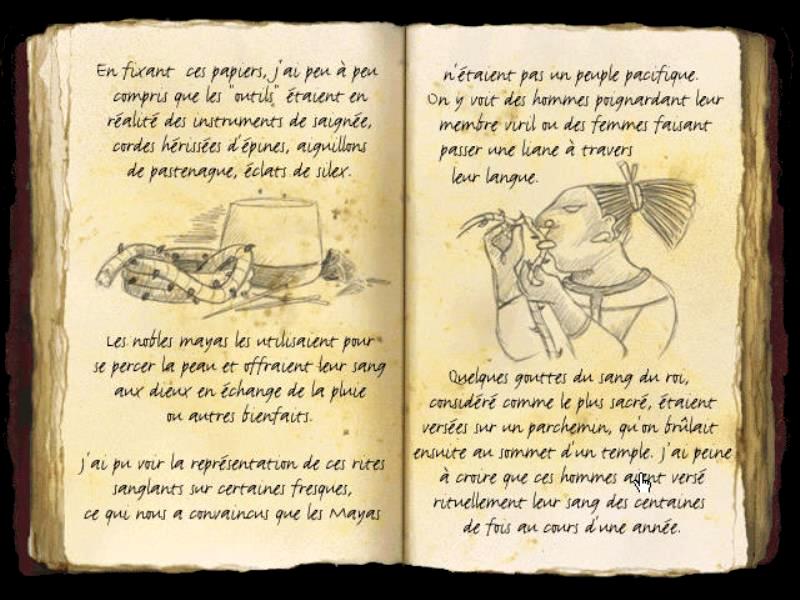 En fixant ces papiers, j'ai peu à peu
compris que les "outils" étaient en
réalité des instruments de saignée,
cordes hérissées d'épines, aiguillons
de pastenague, éclats de silex.
Les nobles mayas les utilisaient pour
se percer la peau et offraient leur sang
aux dieux en échange de la pluie
ou autres bienfaits.
j'ai pu voir la représentation de ces rites
sanglants sur certaines fresques,
ce qui nous a convaincus que les Mayas
n'étaient pas un peuple pacifique.
On y voit des hommes poignardant leur
membre viril ou des femmes faisant
passer une liane à travers
leur langue.
Quelques gouttes du sang du roi,
considéré comme le plus sacré, étaient
versées sur un parchemin, qu'on brûlait
ensuite au sommet d'un temple. j'ai peine
à croire que ces hommes aient versé
rituellement leur sang des centaines
de fois au cours d'une année.